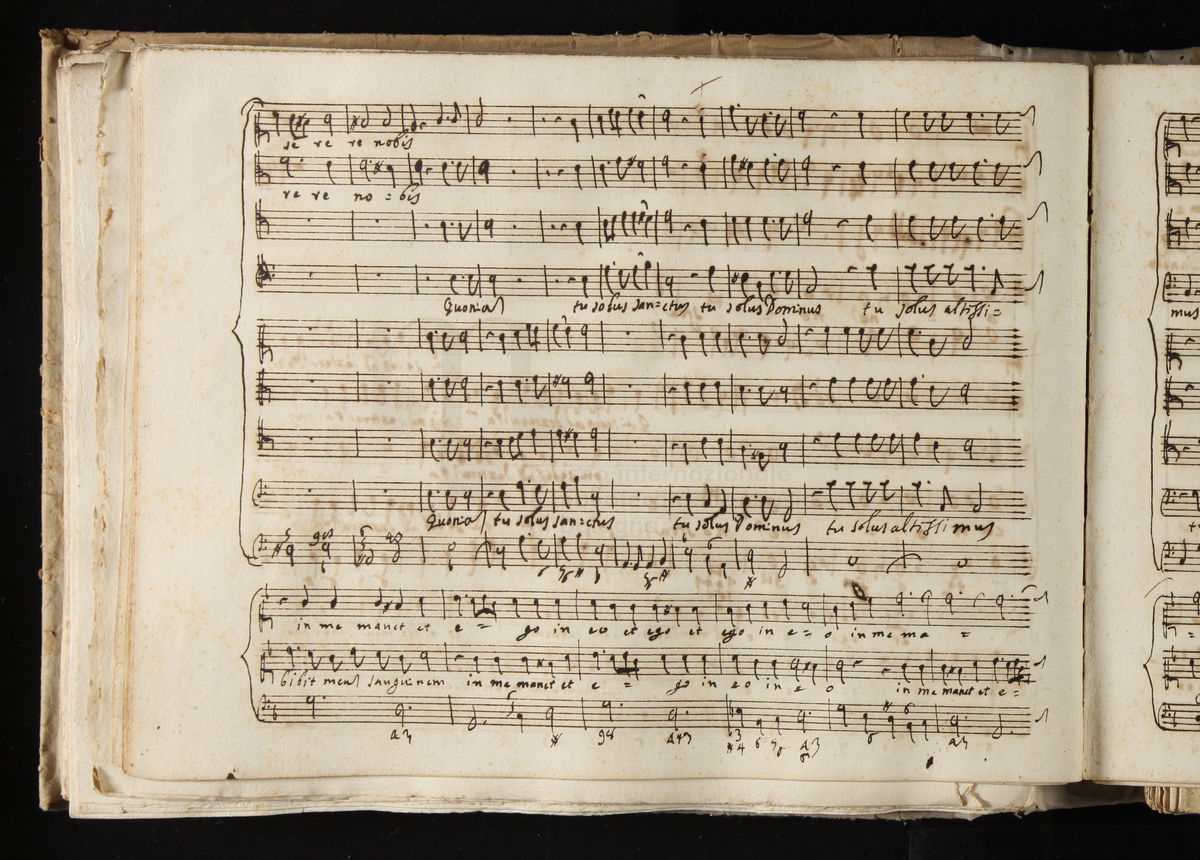 se re re nobis
re re no = bis
Quoniam tu solus san=ctus tu solus Dominus tu solus altissi=
Quoniam tu solus san=ctus tu solus Dominus tu solus altissimus
in me manet et e = go in eo et ego et ego in e = o in me ma =
bibit meum sanguinem in me manet et e = go in eo in e o in me manet et e =
mus